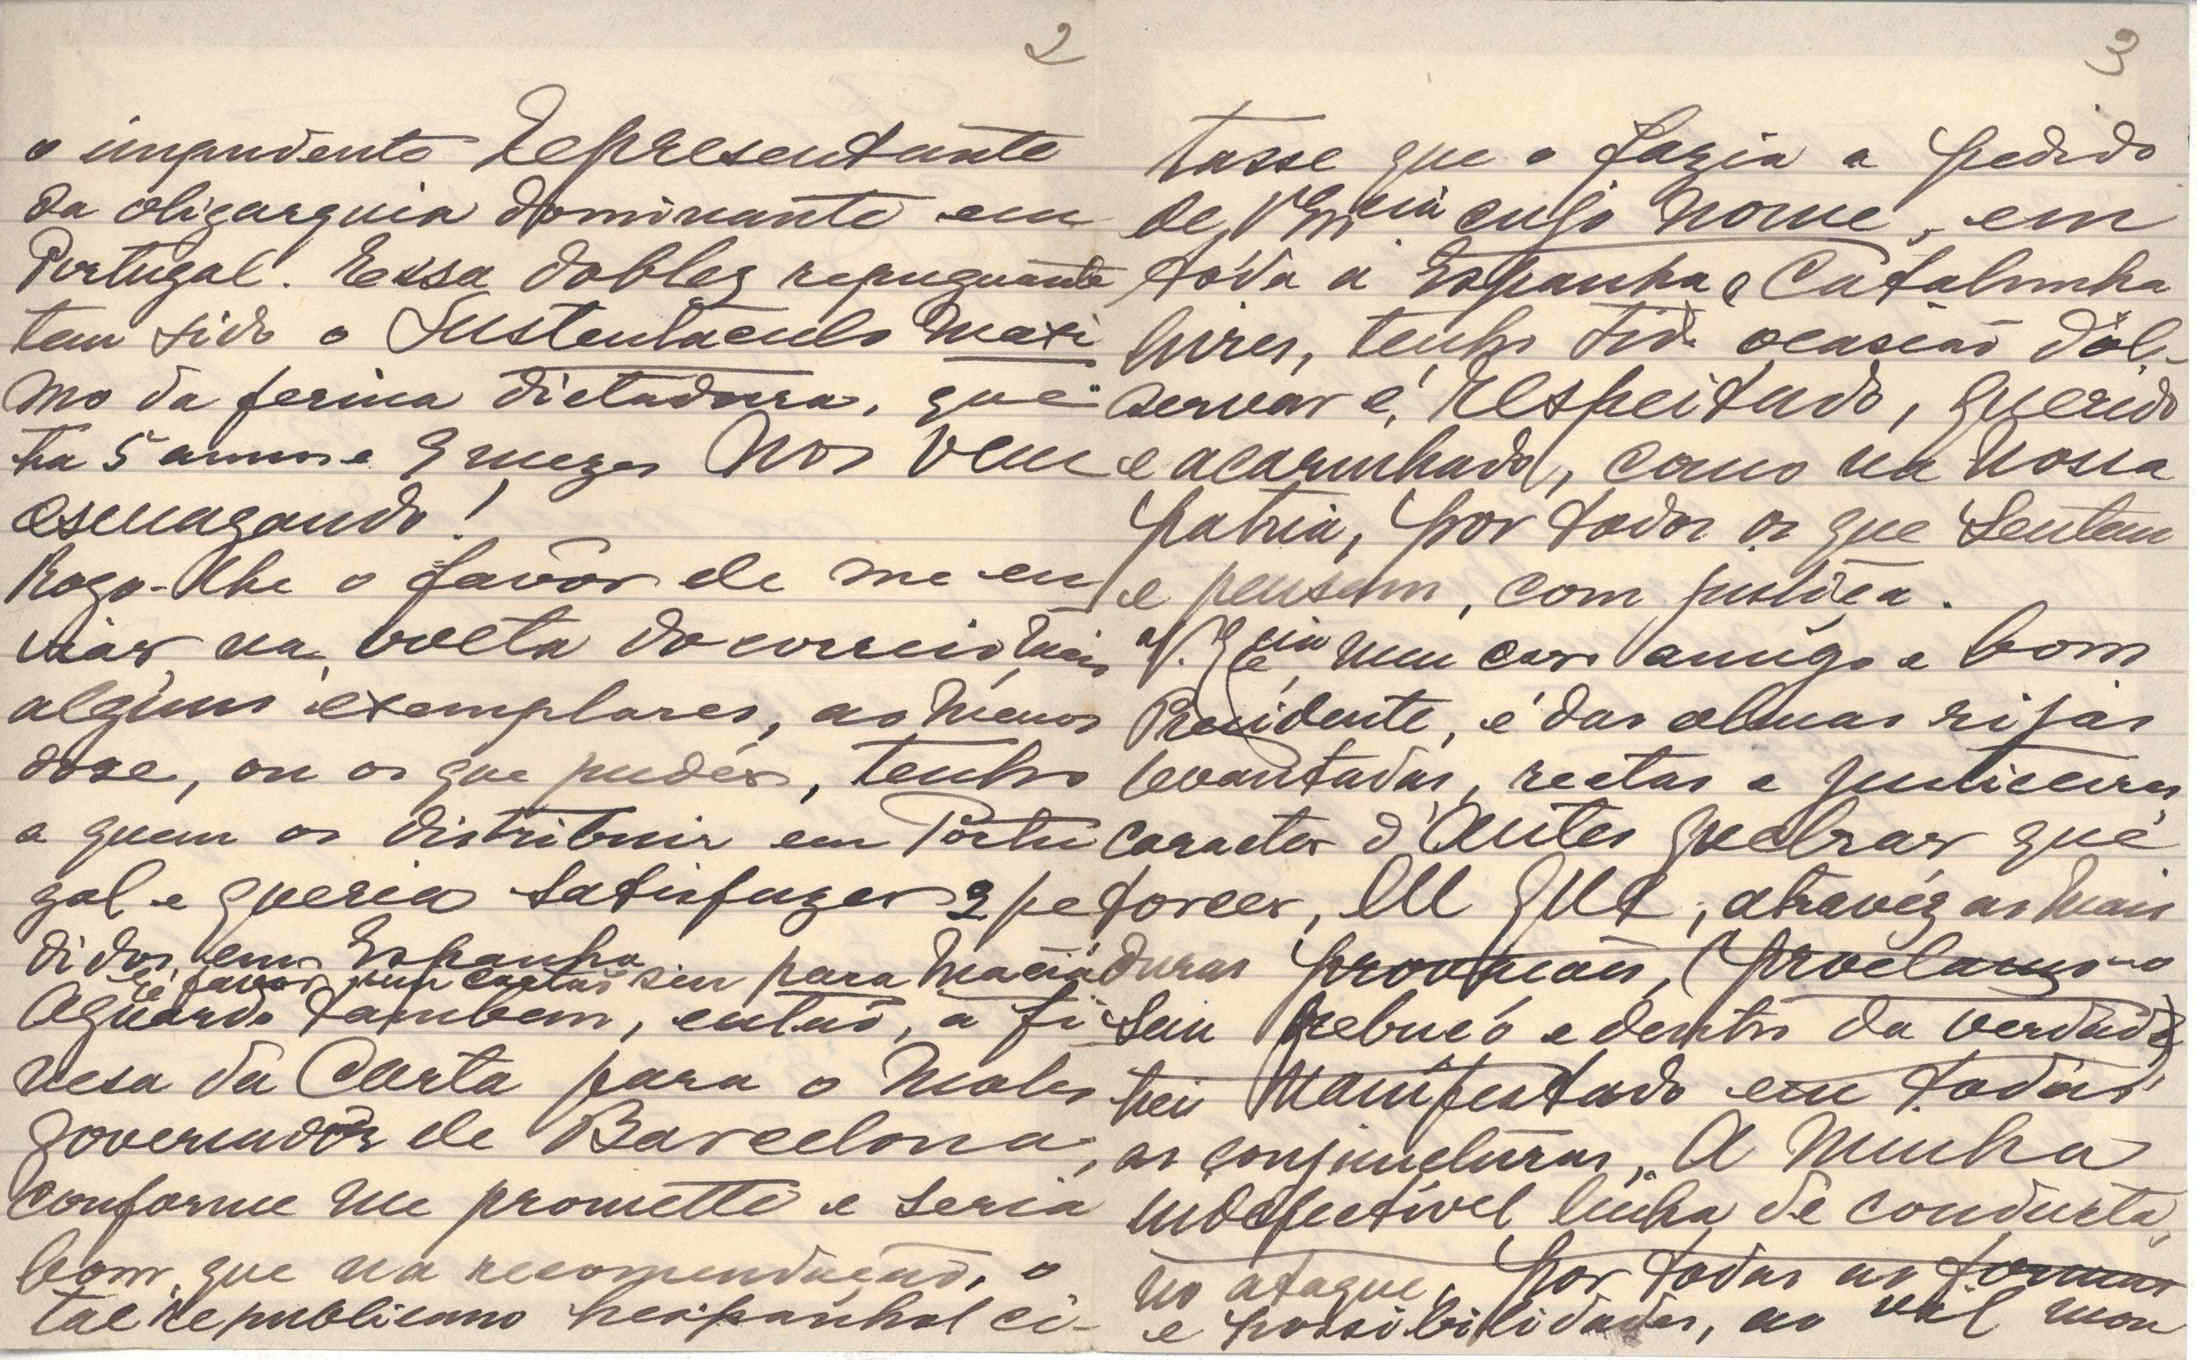 2
o impudente Representante
da oligarquia dominante em
Portugal. Essa doblez repugnante
tem sido o Sustentaculo maxi
mo da ferina dictadura, que
ha 5 annos e 9 mezes nos vem
esmagando!
Rogo-lhe o favor de me en
viar na volta do correio, mais
alguns exemplares, ao menos
dose, ou os que pudér, tenho
a quem os distribuir em Portu
gal e queria satisfazer 2 pe
didos em Espanha
é favor um cartão seu para Maciá
Aguardo tambem, então, a fi
nesa da Carta para o
governadôr de Barcelona,
conforme me prometté e seria
bom, que na recomendação, o
tal republicano hespanhol ci-
3
tasse que o fazia a pedido
de V. Ex.cia cujo nome, em
tôda a Espanha e Catalunha
livres, tenho tido ocasião d'ob-
servar é, respeitado, querido
e acarinhado, como na nossa
Patria, por todos os que sentem
e pensam, com justiça.
V. Ex.cia meu caro amigo e bom
Presidente, é das almas rijas
levantadas, rectas e justiceiras
caracter d'antes quebrar que
torcer, em que, atravéz as mais
duras provações, (proclamo-o
sem rebuço e dentro da verdade)
hei manifestado em todas
as conjuncturas, A minha
indefectível linha de conducta,
no ataque, por todas as formas
e possibilidades, ao vil mon